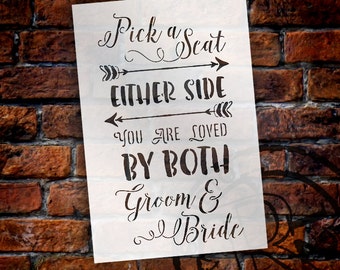 Pick a
Seat
EITHER SIDE
YOU ARE LOVED
BY BOTH
Groom &
Bride